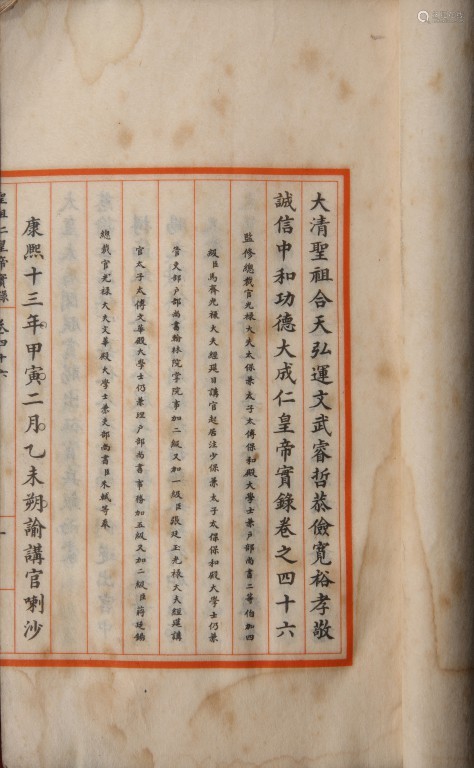 大清聖祖合天弘運文武睿哲恭儉寬裕孝敬
誠信中和功德大成仁皇帝實錄卷之四十六
監修總裁官光祿大夫太保兼太子太傅保和殿大學士兼戶部尚書二等伯加四
級臣馬齊光祿大夫經筵日講官起居注少保兼太子太保保和殿大學士仍兼
管吏部戶部尚書翰林院掌院事加二級又加一級臣張廷玉光祿大夫經筵講
官太子太傅文華殿大學士仍兼理戶部尚書事務加五級又加二級臣蔣廷錫
總裁官光祿大夫文華殿大學士兼吏部尚書臣朱軾等奉
康熙十三年甲寅二月乙未朔諭講官喇沙
聖祖仁皇帝實錄 卷四十六 一